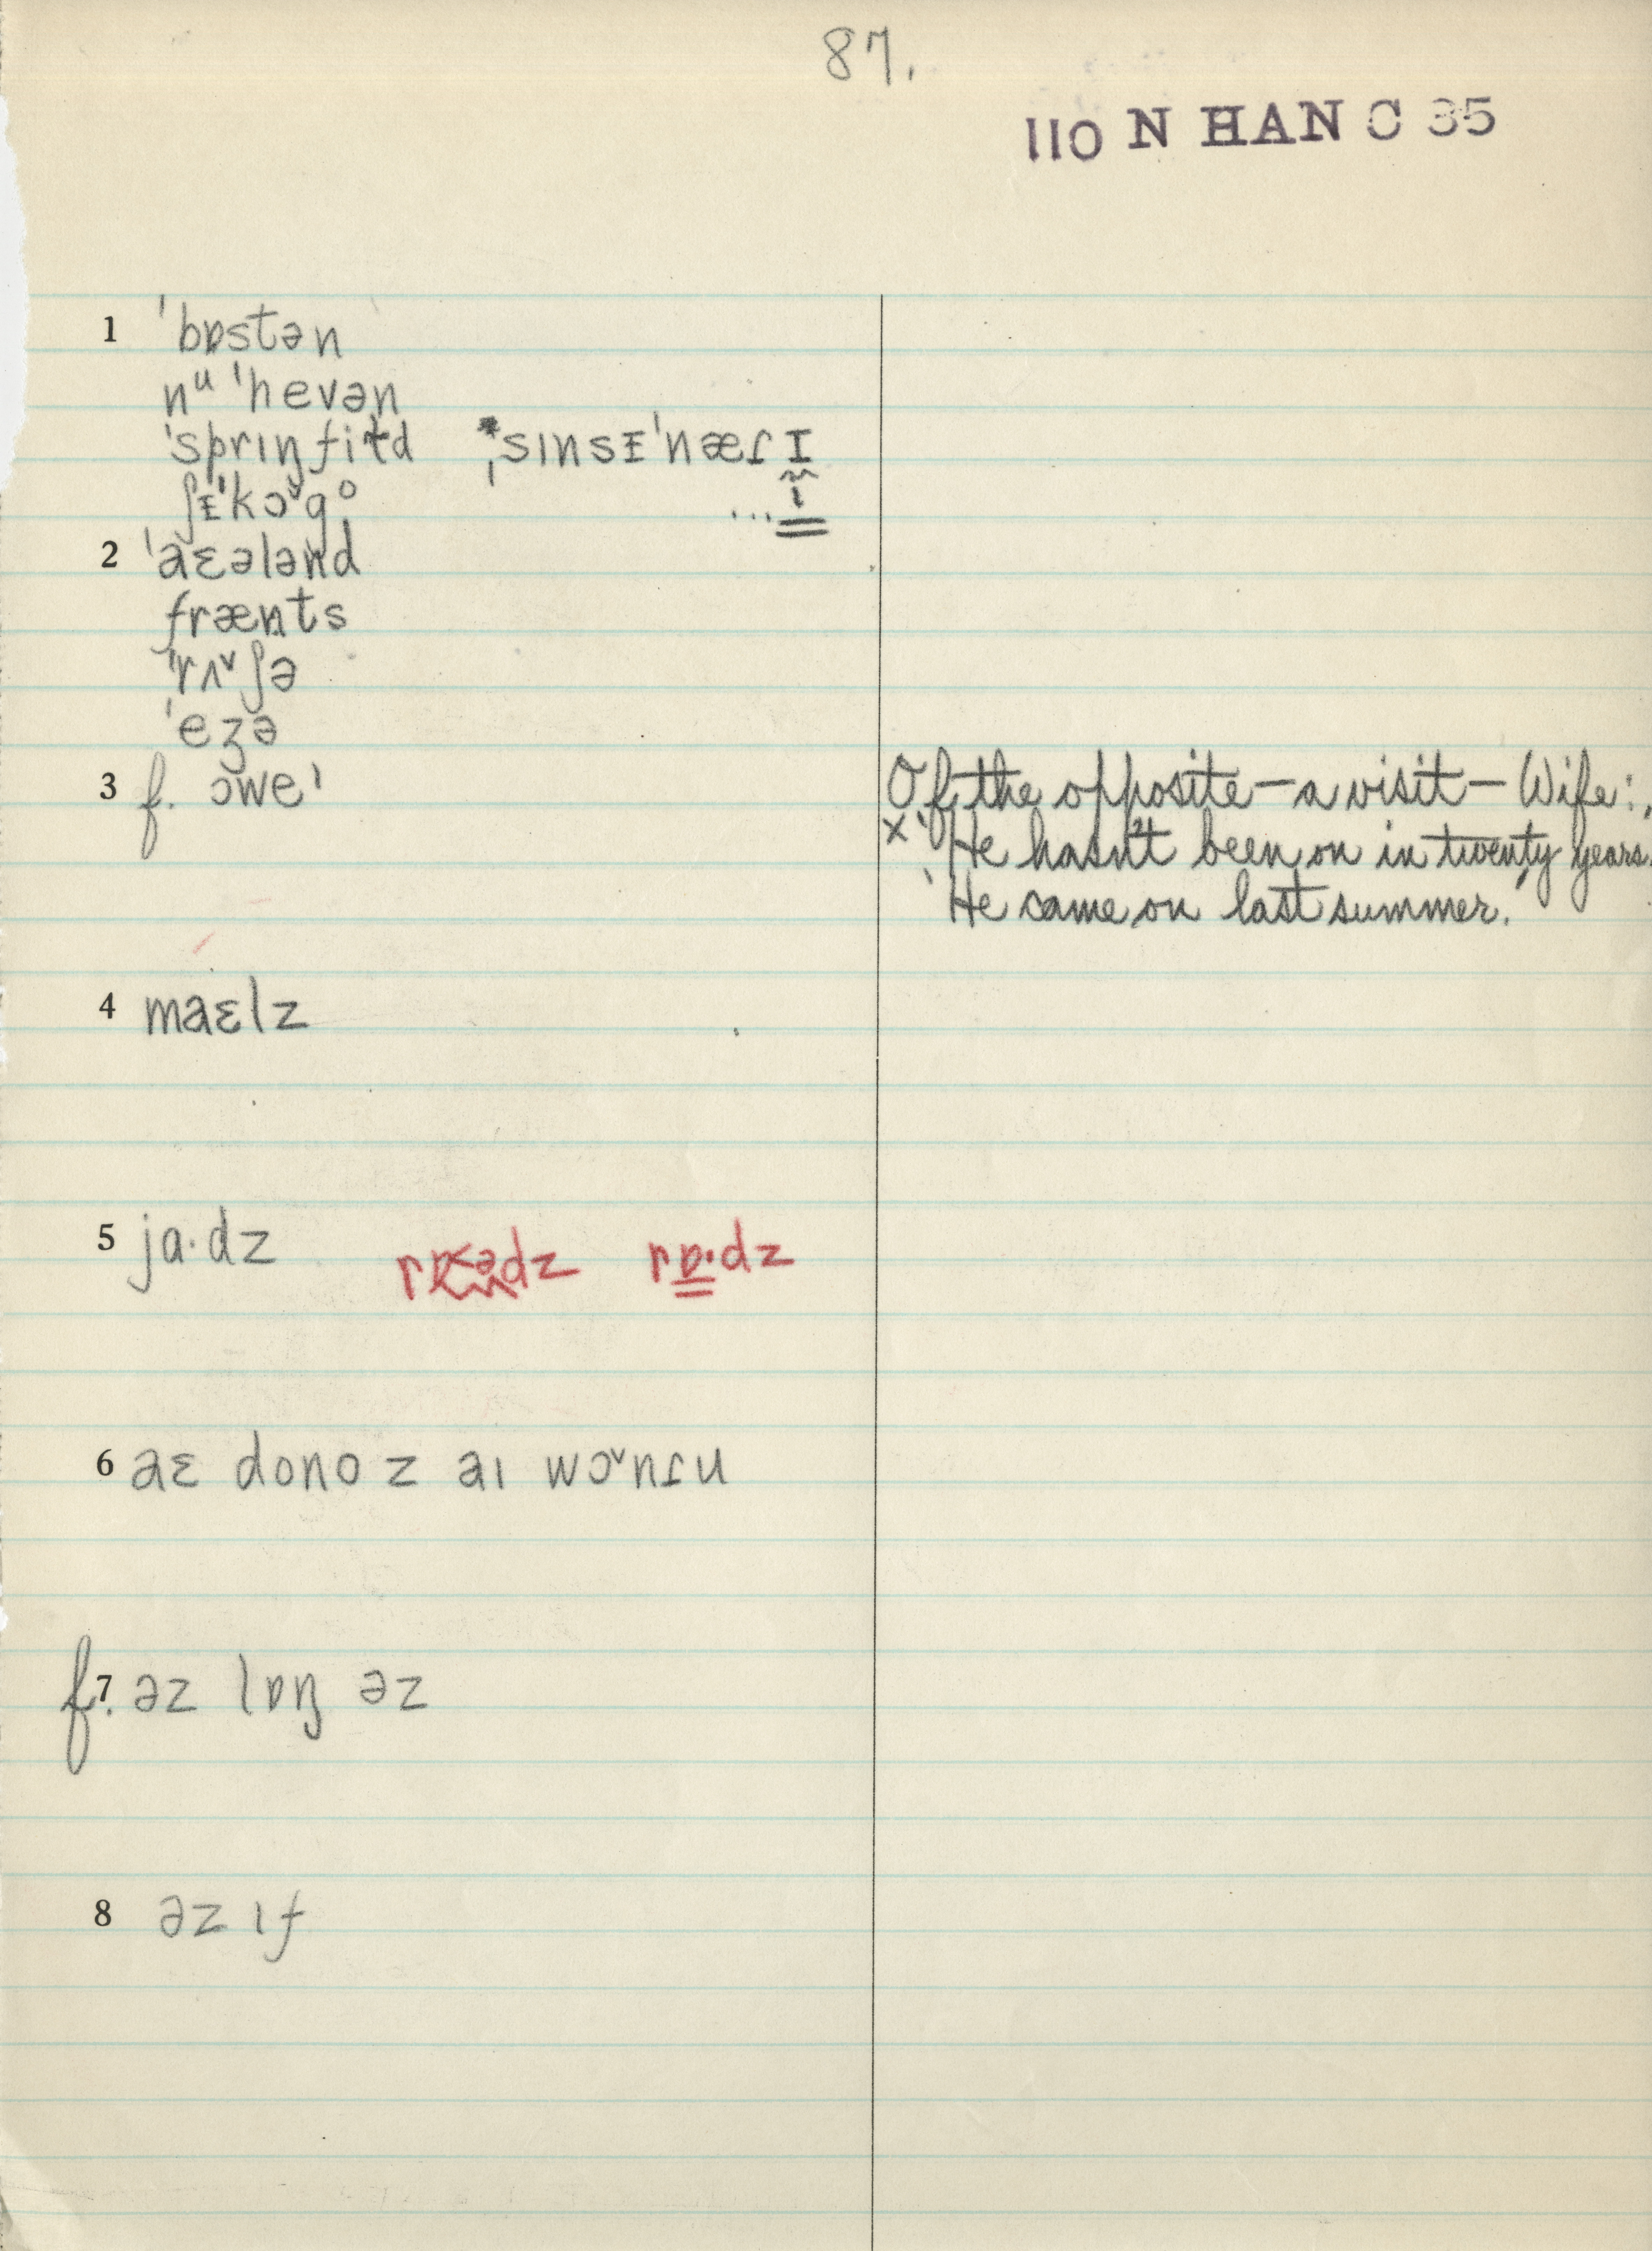 87.
110 N HAN C 35
1 ˈbɒstən
nᵘ ˈhevən
ˈsprɪŋfiɫd *ˌsɪnsᵻˈnæɾɪ
ʃᵻˈkɔˇgᵒ ... i
2 ˈaɛələnd
frænts
ˈrʌˇʃə
ˈeʒə
3 f. ɔweˈ Of the opposite – a visit – Wife:
x 'He hasn't been on in twenty years.
'He came on last summer.'
4 maɛlz
5 ja·dz rɒ<ədz rɒ·dz
6 aɛ dono z aɪ wɔˇnɾu
f. 7 əz lɒŋ əz
8 əz ɪf